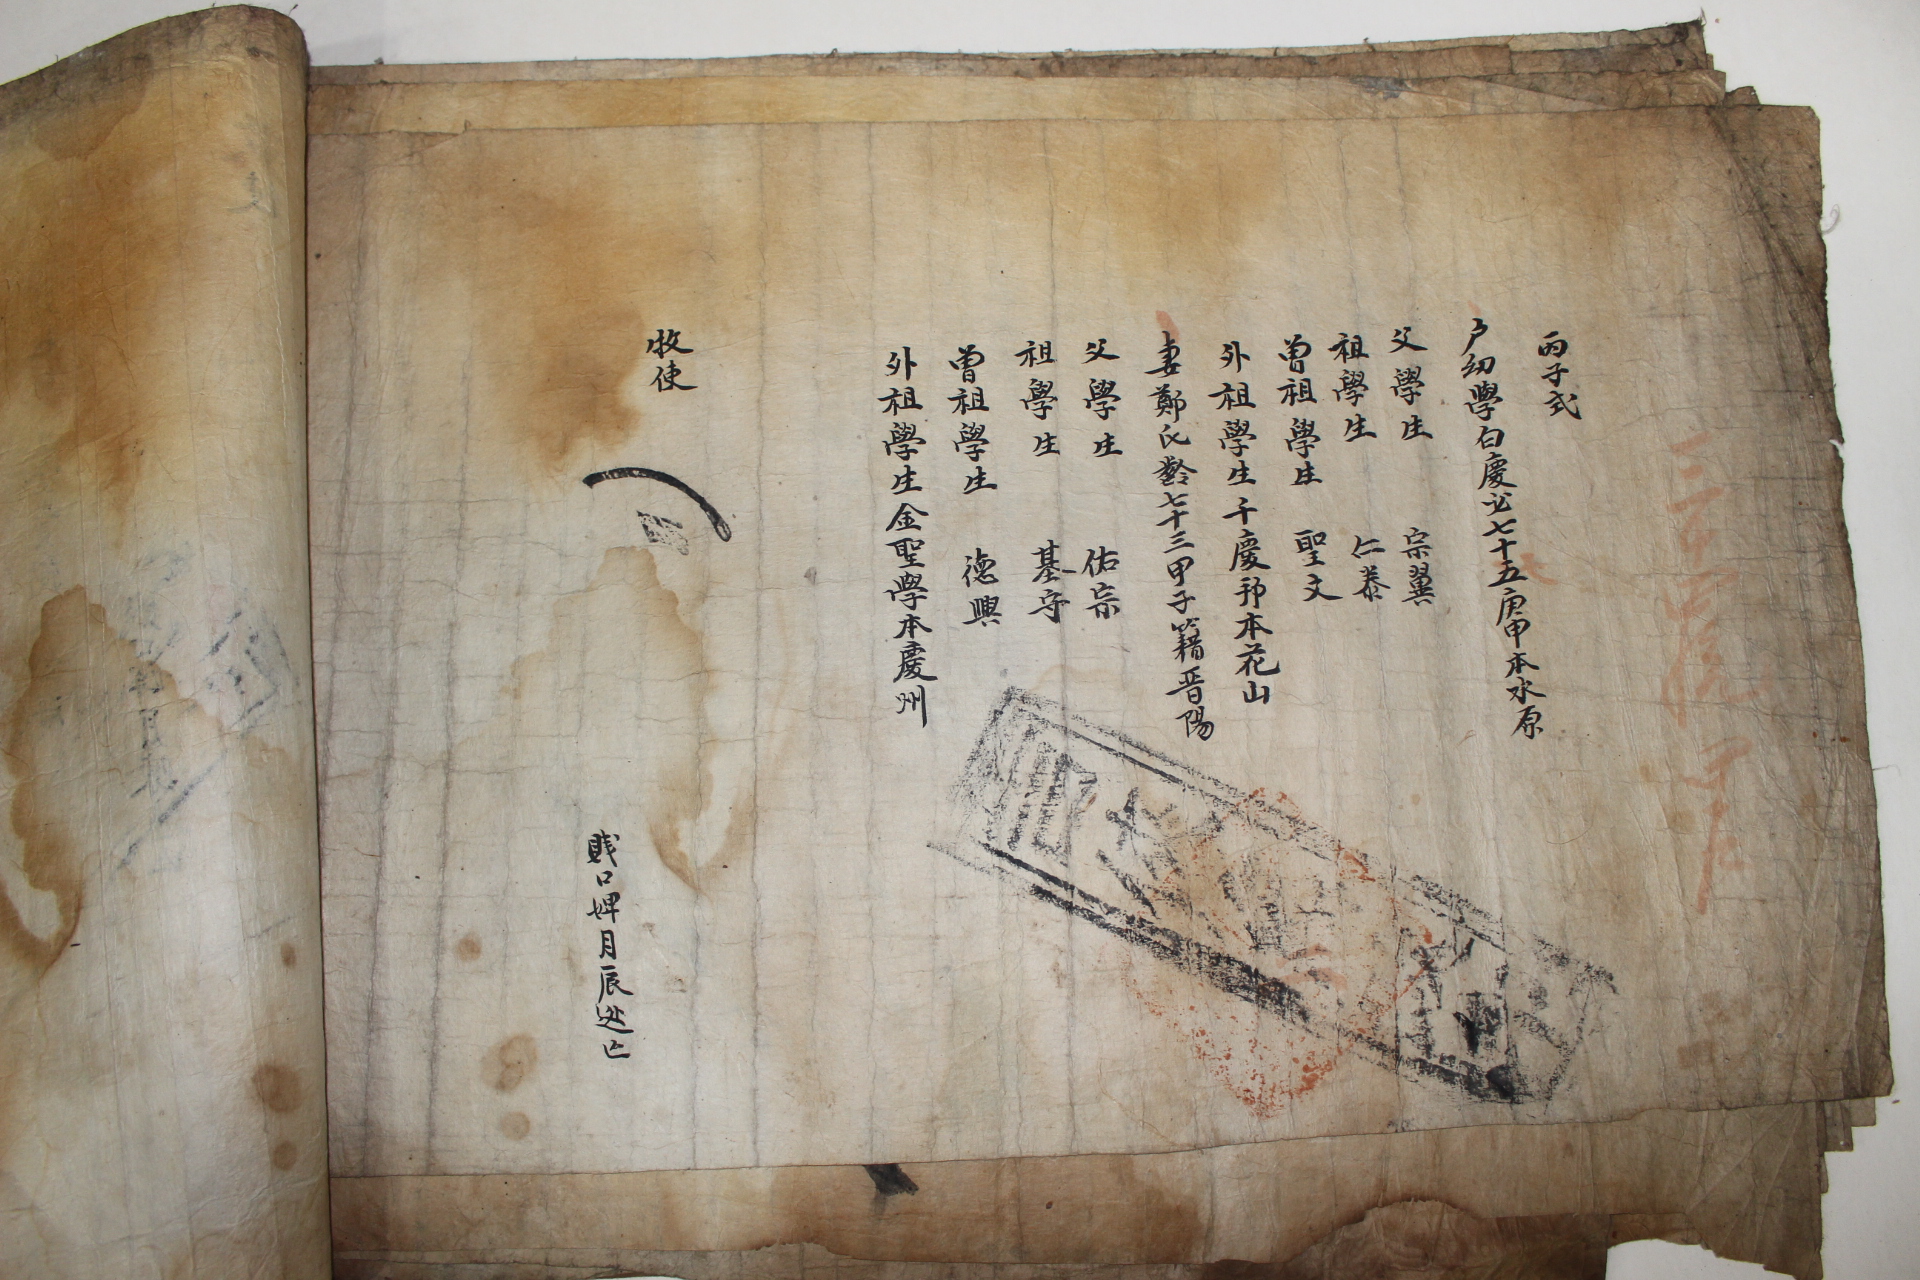 丙子式
户幼學白慶必七十五庚甲本水原
父學生 宗翼
祖學生 仁泰
曽祖學生 聖文
外祖學生千慶邦本花山
妻鄭氏齡七十三甲子籍晋陽
父學生 佑宗
祖學生 基守
曽祖學生 德興
外祖學生金聖學本慶州
牧使
賎口婢月辰逃亡